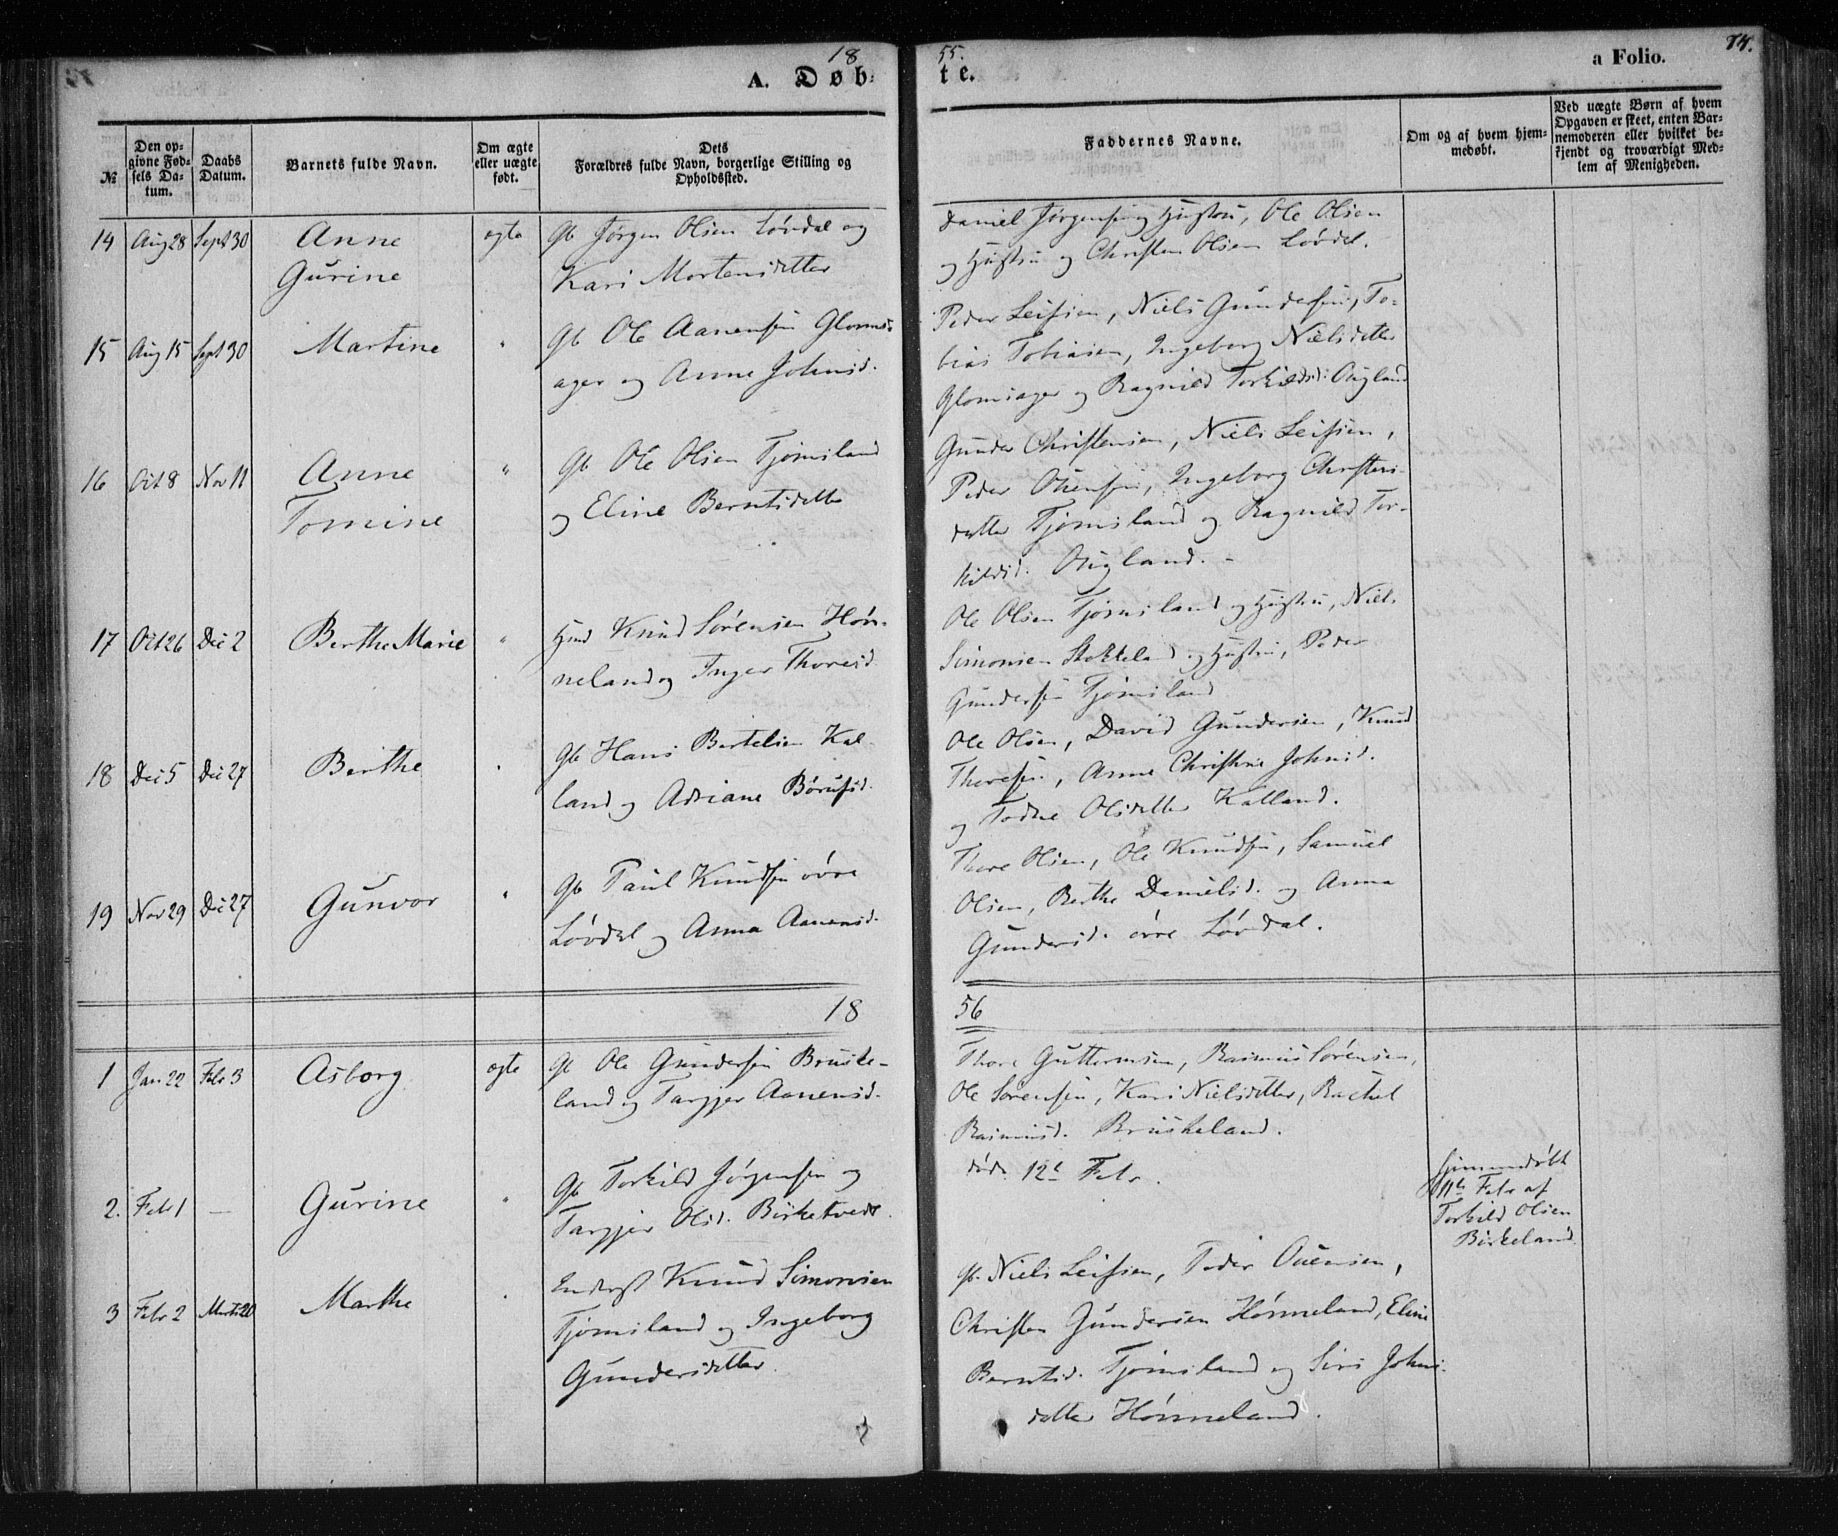 18 55. 74.
A. Døbte. a Folio.
№
Den opgivne Fødsels Datum.
Daabs Datum.
Barnets fulde Navn.
Om ægte eller uægte født.
Dets Forældres fulde Navn, borgerlige Stilling og Opholdssted.
Faddernes Navne.
Om og af hvem hjemmedøbt.
Ved uægte Børn af hvem Opgaven er skeet, enten Barnemoderen eller hvilket bekjendt og troværdigt Medlem af Menigheden.
14 Aug 28 Sept 30 Anne Gurine ægte
Gb Jørgen Olsen Løvdal og
Kari Mortensdatter
Daniel Jørgensen og Hustru, Ole Olsen
og Hustru og Christen Olsen Løvdal.
15 Aug 15 Sept 30 Martine "
Gb Ole Aanensen Gloms-
ager og Anne Johnsd.
Peder Leifsen, Niels Gundersen, To-
bias Tobiasen, Ingeborg Nielsdatter
Glomsager og Ragnild Torkildsd: Augland
16 Oct 8 Nov 11 Anne Tomine "
Gb Ole Olsen Tjomsland
og Eline Berntsdatter
Gunder Christensen, Niels Leifsen,
Peder Ouensen, Ingeborg Christens-
datter Tjomsland og Ragnild Tor-
kildsd. Augland. -
17 Oct 26 Dec 2 Berthe Marie "
Hmd Knud Sørensen Høn-
neland og Inger Thoresd.
Ole Olsen Tjomsland og Hustru, Niels
Simonsen Stokkeland og Hustru, Peder
Gundersen Tjomsland
18 Dec 5 Dec 27 Berthe "
Gb Hans Bertelsen Kal-
land og Adriane Børufsd.
Ole Olsen, David Gundersen, Knud
Thoresen, Anne Christine Johnsd.
og Todne Olsdatter Kalland.
19 Nov 29 Dec 27 Gunvor "
Gb Paul Knudsen øvre
Løvdal og Anna Aanensd.
Thore Olsen, Ole Knudsen, Samuel
Olsen, Berthe Danielsd. og Anna
Gundersd. øvre Løvdal.
18 56
1 Jan 22 Febr 3 Asborg ægte
Gb Ole Gundersen Bruske-
land og Targjer Aanensd.
Thore Guttormsen, Rasmus Sørensen,
Ole Sørensen, Kari Nielsdatter, Rachel
Rasmusd. Bruskeland.
2. Febr 1 — Gurine "
Gb Torkild Jørgensen og
Targjer Olsd. Birketvedt.
død 12te Febr.
hjemmedøbt
11te Febr af
Torkild Olsen
Birkeland.
3 Febr 2 Marts 20 Marthe "
Inderst Knud Simonsen
Tjomsland og Ingeborg
Gundersdatter.
Gb. Niels Leifsen, Peder Ouensen,
Christen Gundersen Hønneland, Eline
Berntsd. Tjomsland og Siri Johns-
datter Hønneland.